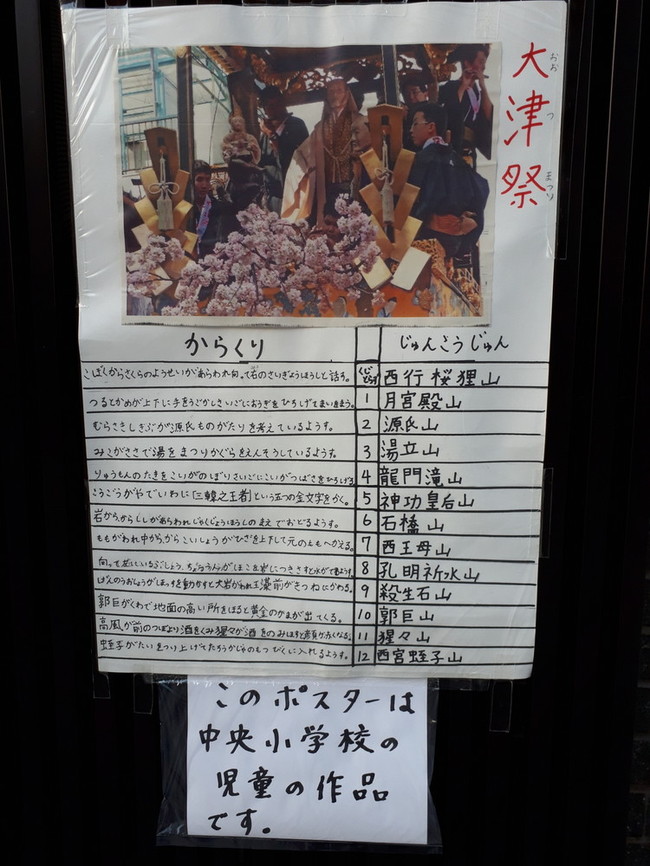 大津祭
おお つ まつり
からくり じゅんこうじゅん
こぼくからさくらのようせいがあらわれ向って右のさいぎょうほうしと話す。 くじとらず 西行桜狸山
つるとかめが上下に手をうごかしさいごにおうぎをひろげてまいをまう。 1 月宮殿山
むらさきしきぶが源氏ものがたりを考えているようす。 2 源氏山
みこがささで湯をまつりかぐらをえんそうしているようす。 3 湯立山
りゅうもんのたきをこいがのぼりさいごにこいがつばさをひろげる 4 龍門滝山
こうごうがやでいわに「三韓之王者」という五つの金文字をかく。 5 神功皇后山
岩からからししがあらわれじゃくじょうほうしのまえでおどるようす。 6 石橋山
ももがわれ中からからこいしょうがひざを上下して元のももへかえる。 7 西王母山
向って左にいるぶしょう、ちょううんがほこを岩につきさすと水がでるようす。 8 孔明祈水山
げんのうおしょうがほっすを動かすと大岩がわれ玉藻前がきつねにかわる。 9 殺生石山
郭巨がくわで地面の高い所をほると黄金のかまが出てくる。 10 郭巨山
高風が前のつぼより酒をくみ猩々が酒をのみほすと顔が赤くなる。 11 猩々山
蛭子がたいをつり上げてたろうかじゃのもつびくに入れるようす。 12 西宮蛭子山
このポスターは
中央小学校の
児童の作品
です。